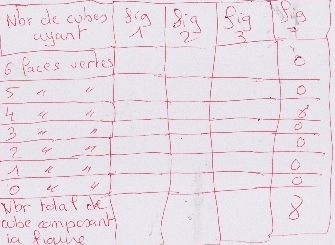 Nbr de cubes ayant fig 1 fig 2 fig 3 fig
6 faces vertes 0
5 " " 0
4 " " 8
3 " " 0
2 " " 0
1 " " 0
0 " " 0
Nbr total de
cube composant 8
la figure